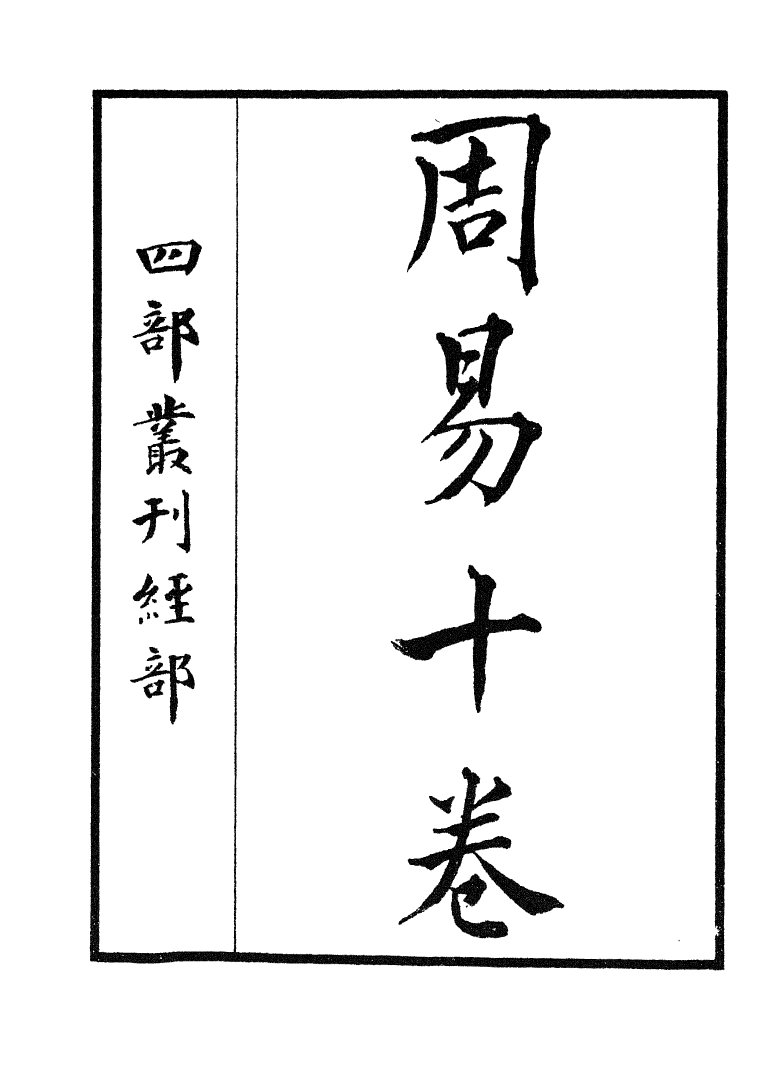 周易十卷
四部叢刊經部